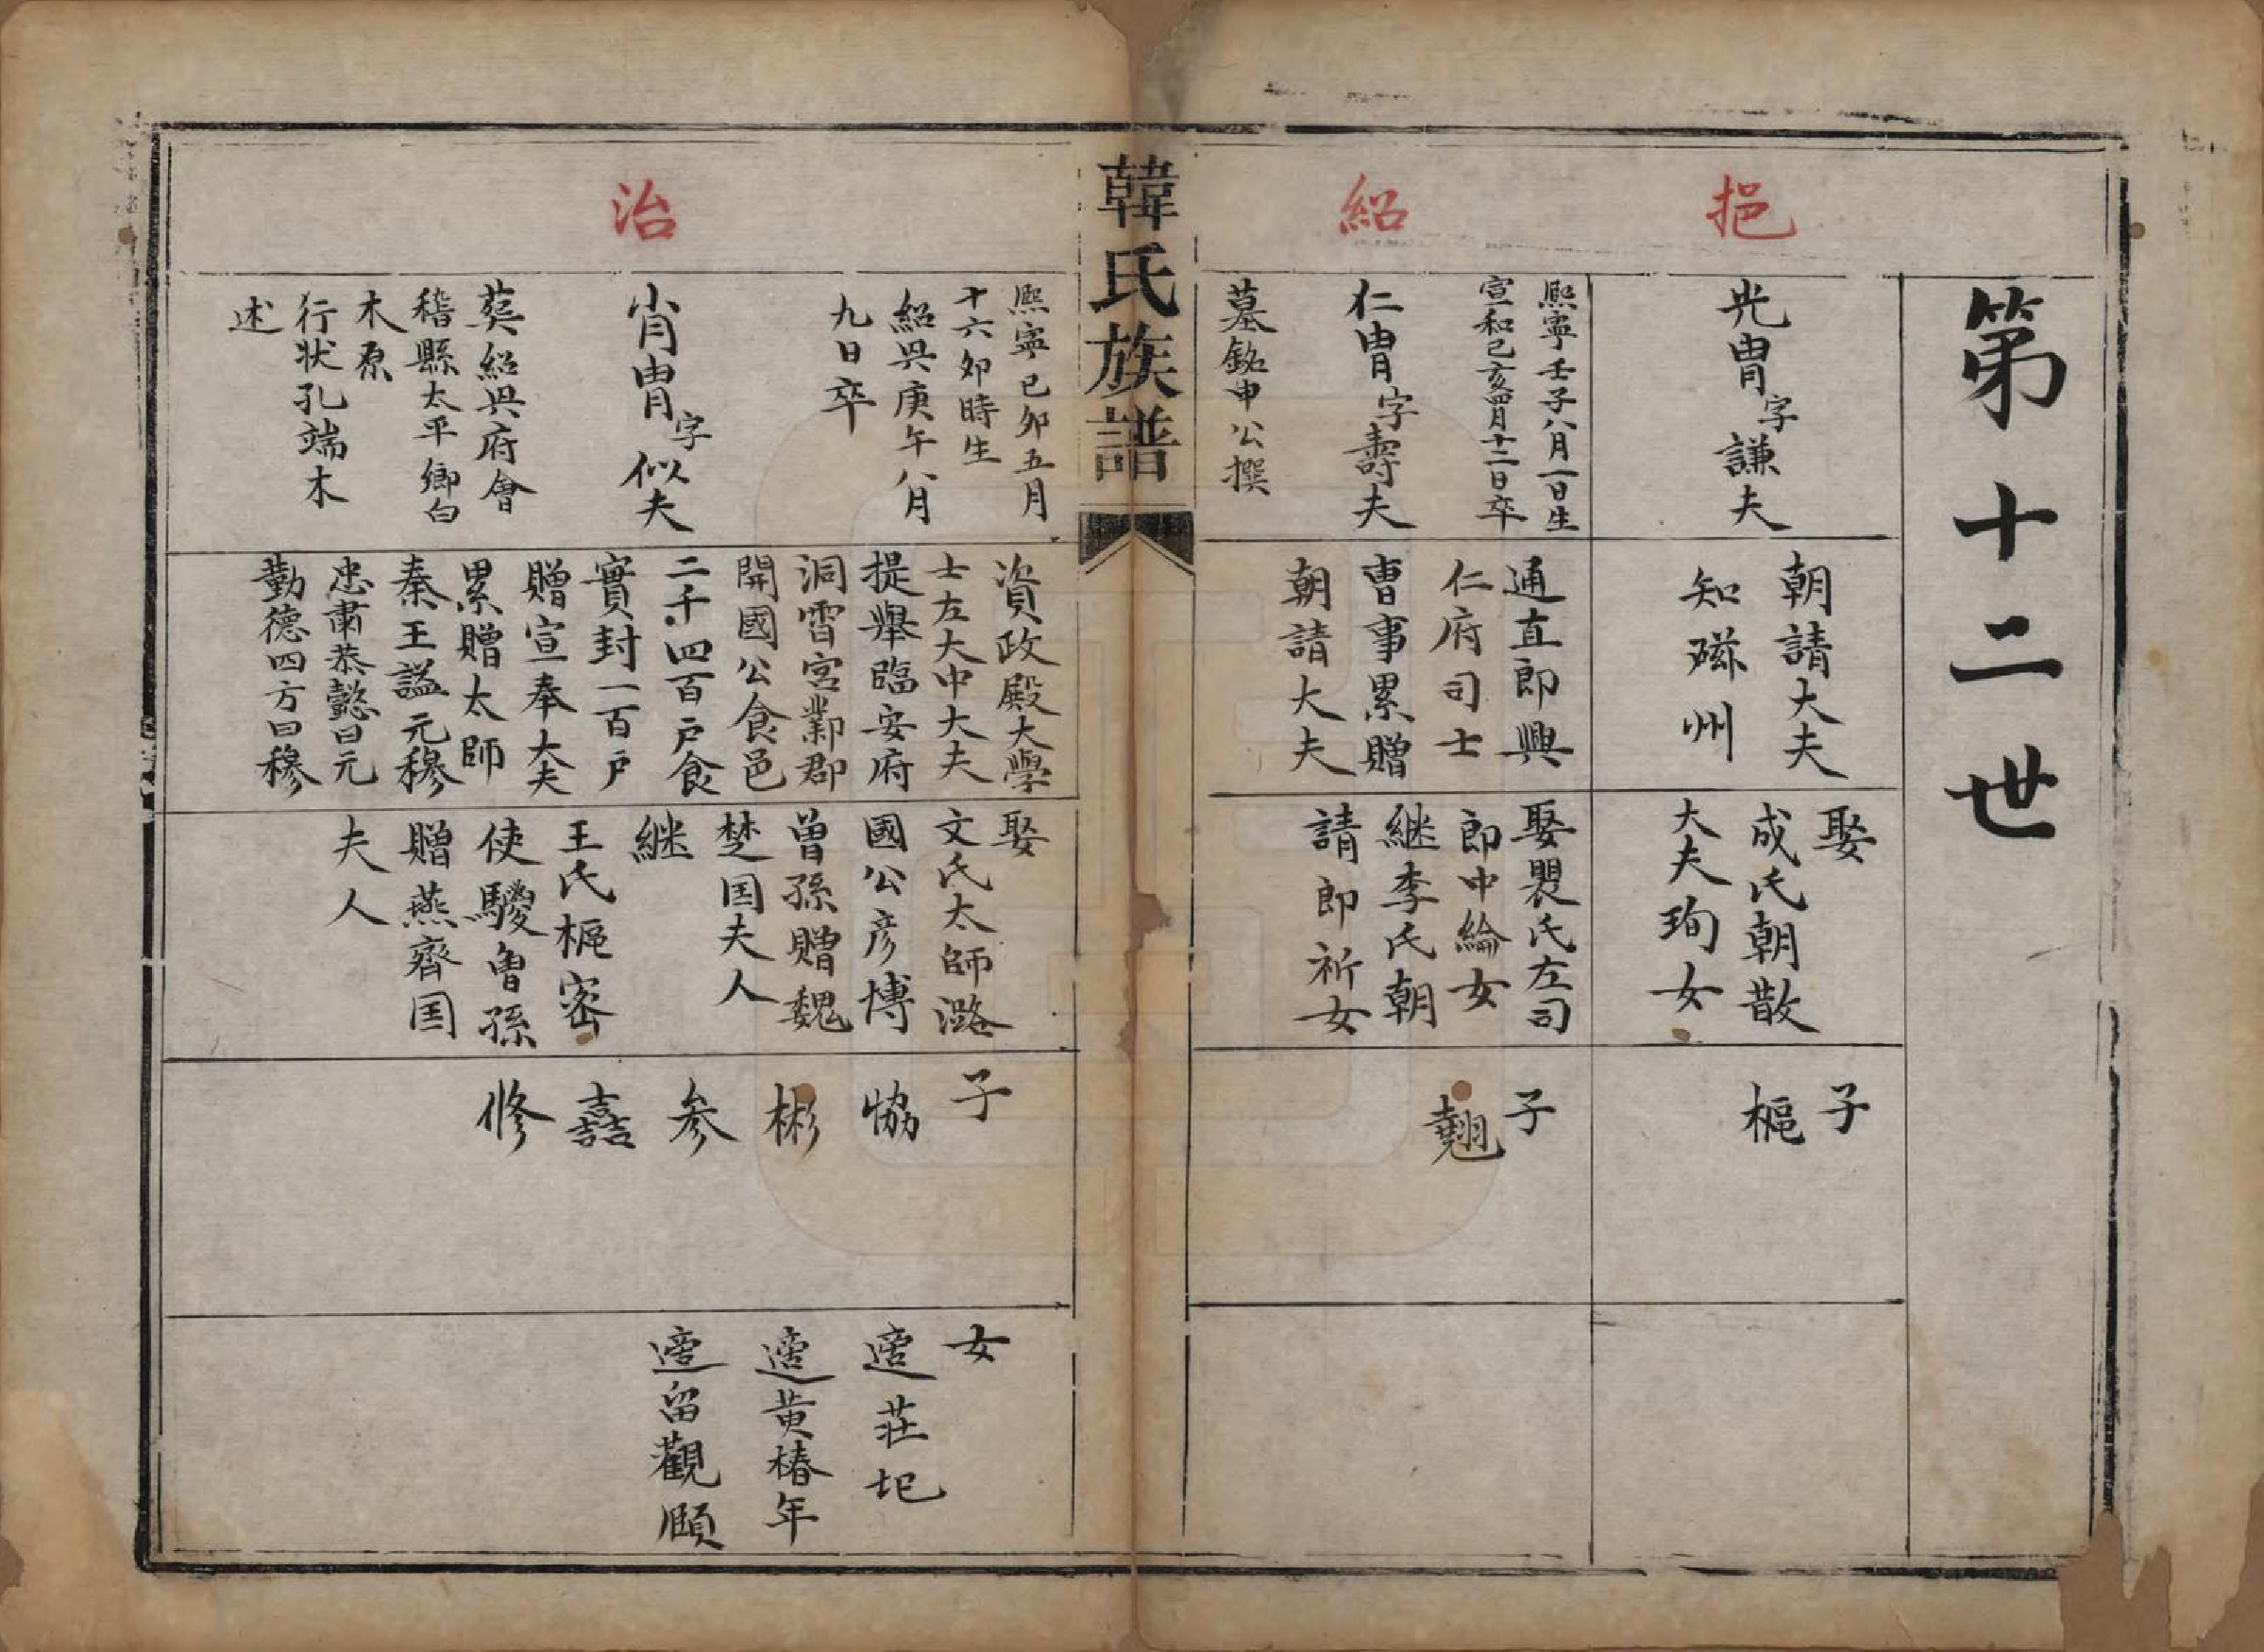 第十二世
挹
光胄字謙夫
朝請大夫
知磁州
娶
成氏朝散
大夫珣女
子
樞
紹
熙寧壬子八月一日生
宣和己亥四月十二日卒
仁胄字壽夫
墓銘申公撰
通直郎興
仁府司士
曹事累贈
朝請大夫
娶㷼氏左司
郎中綸女
継李氏朝
請郎祈女
子
翹
韓氏族譜
治
熙寧己卯五月
十六卯時生
紹興庚午八月
九日卒
肖胄字似夫
葬紹興府會
稽縣太平鄉白
木原
行状孔端木
述
資政殿大學
士左大中大夫
提舉臨安府
洞霄宮鄴郡
開國公食邑
二千四百戶食
實封一百戶
贈宣奉大夫
累贈太師
秦王諡元穆
忠肅恭懿曰元
勤德四方曰穆
娶
文氏太師潞
國公彥博
曾孫贈魏
楚国夫人
継
王氏樞密
使驋曾孫
贈燕齊国
夫人
子
協
彬
参
嚞
修
女
適莊圯
適黄椿年
適留觀頤